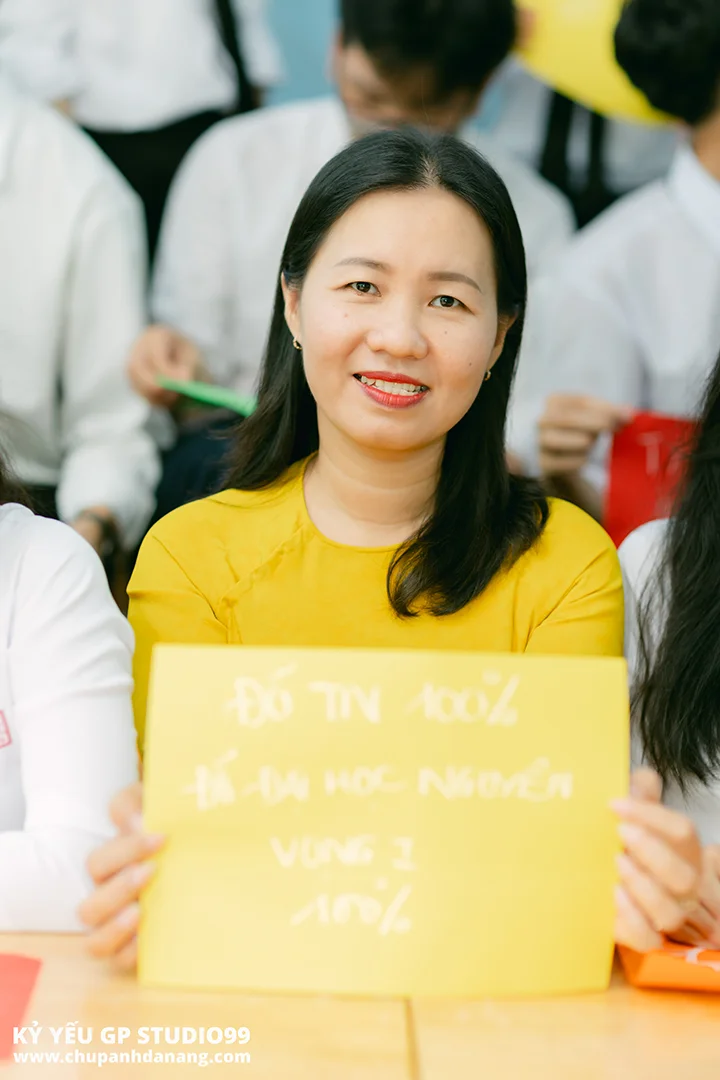 ĐỖ TN 100%
ĐỖ ĐẠI HỌC NGUYỆN
VỌNG I
100%
KỶ YẾU GP STUDIO99
www.chupanhdanang.com